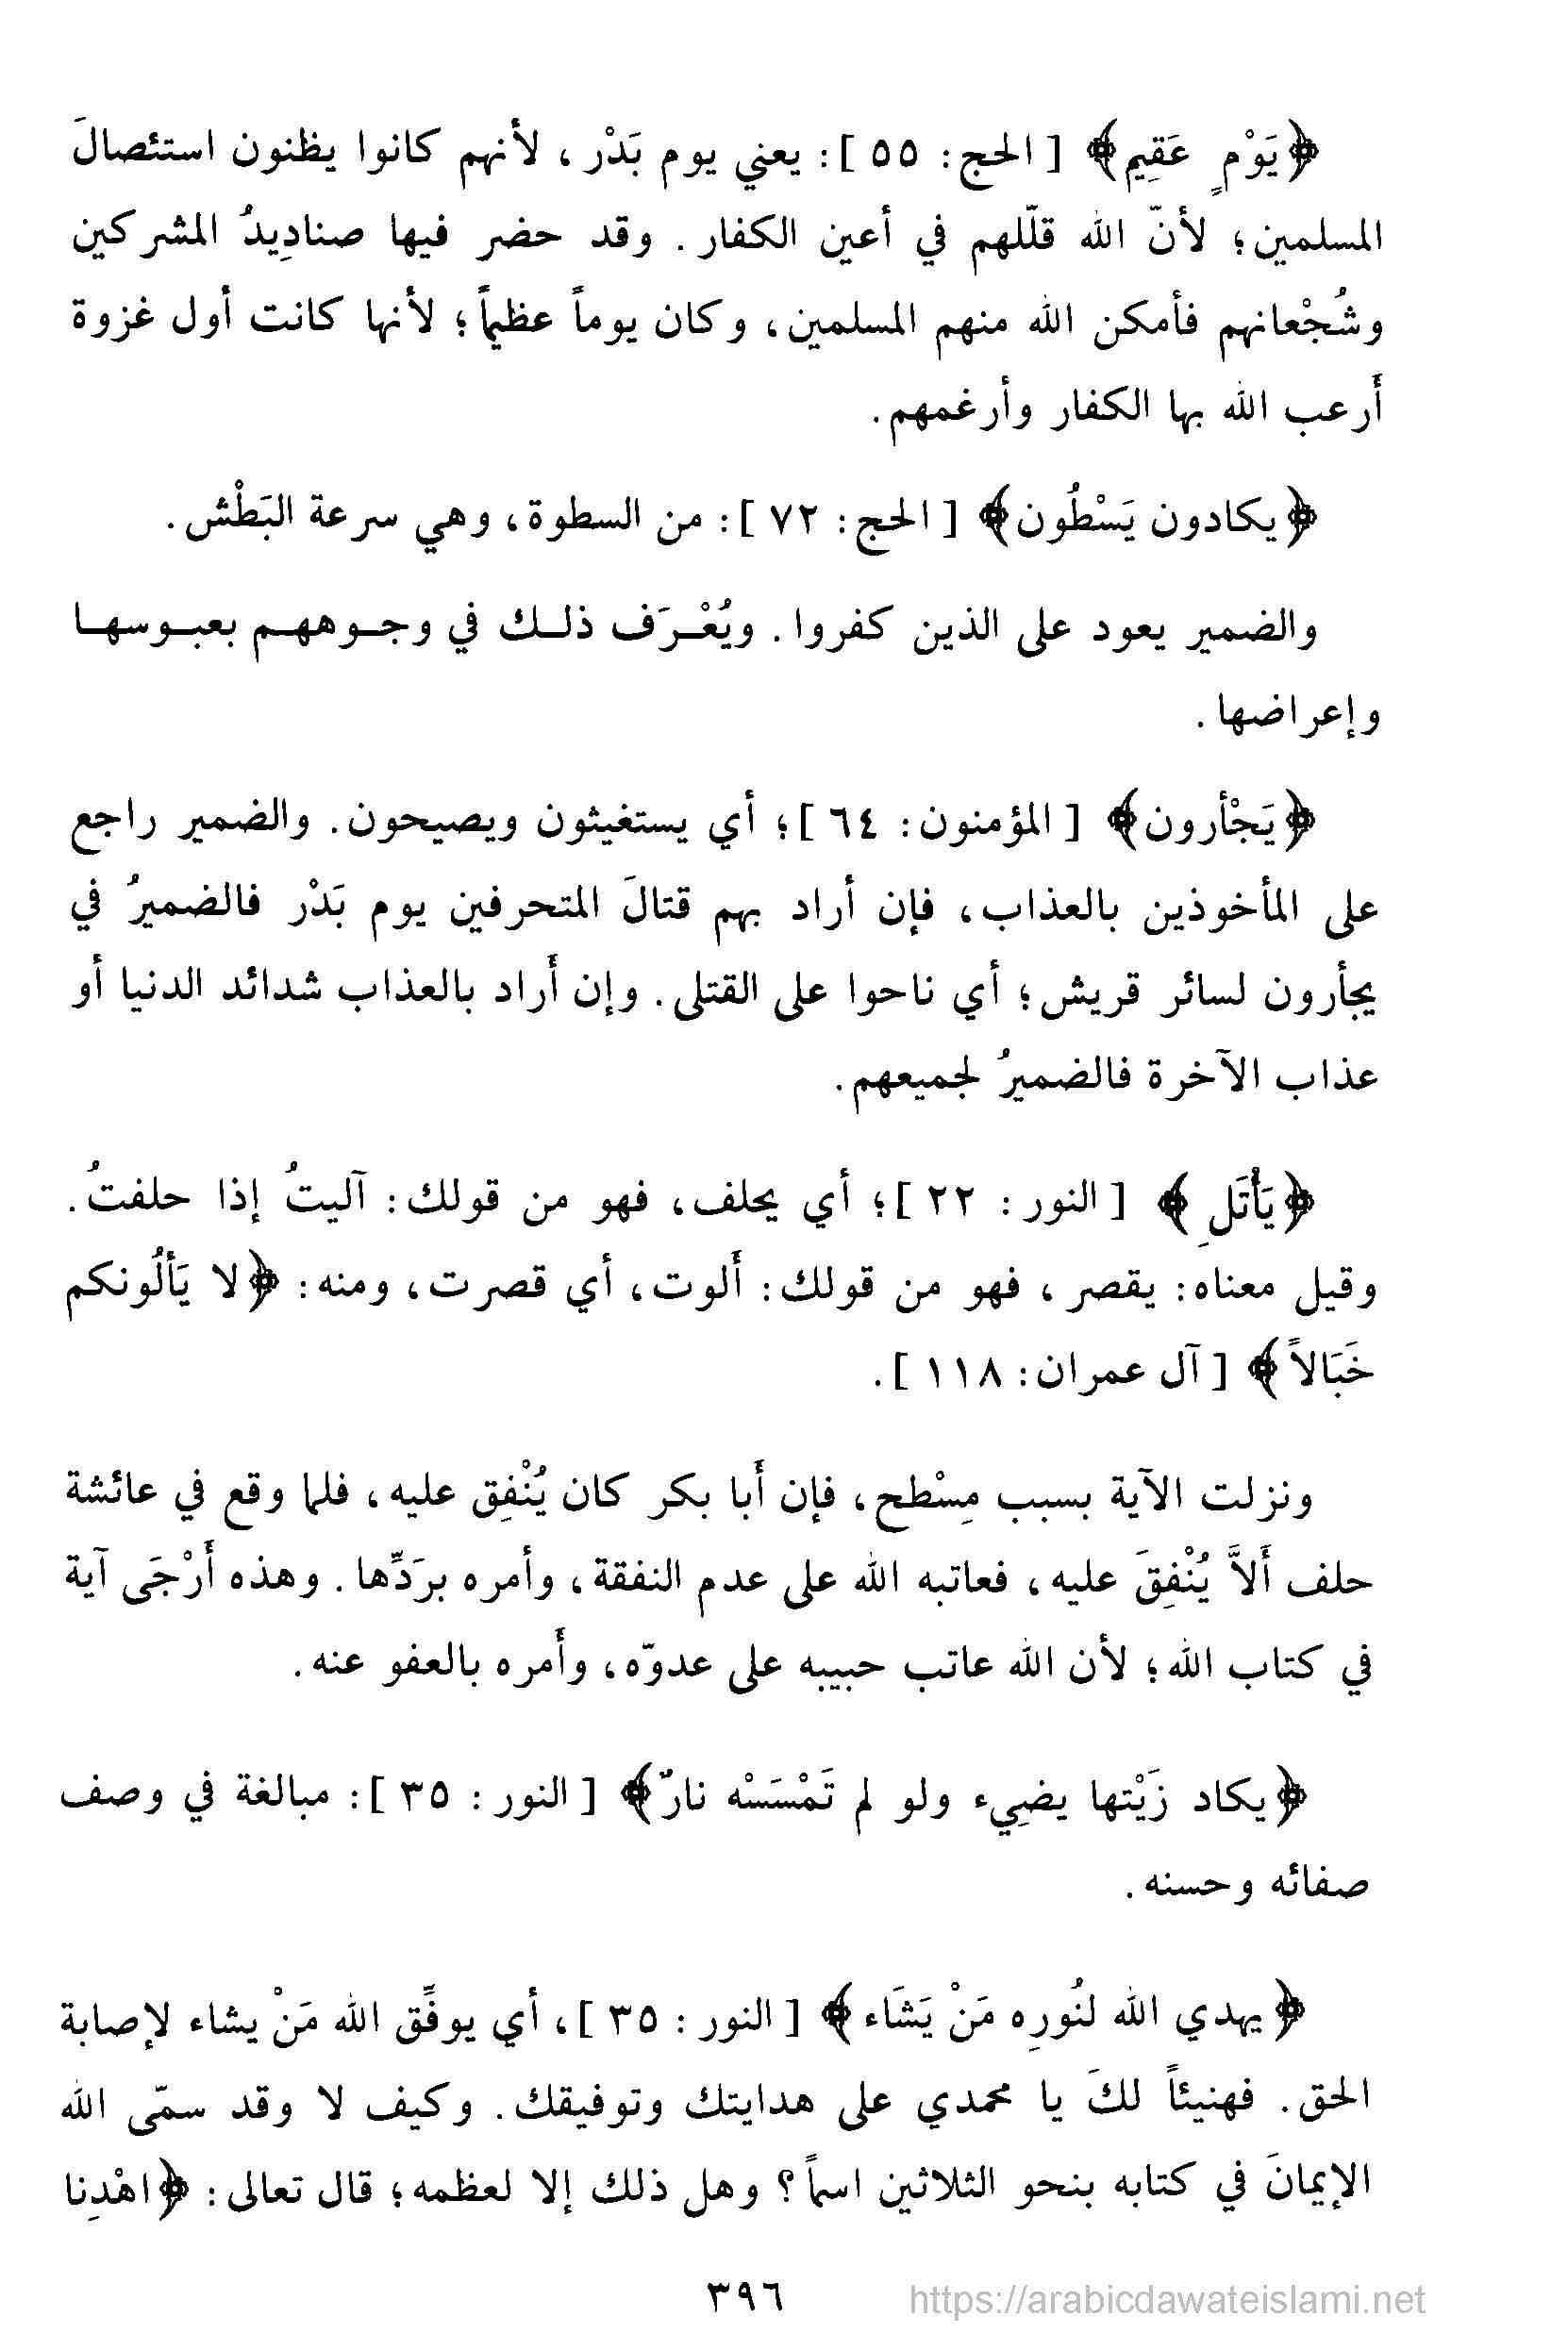 ﴿يَوْمٍ عَقِيم﴾ [ الحج: ٥٥ ]: يعني يوم بَدْر، لأنهم كانوا يظنون استئصالَ
المسلمين؛ لأنّ الله قلّلهم في أعين الكفار. وقد حضر فيها صنادِيدُ المشركين
وشُجْعانهم فأمكن الله منهم المسلمين، وكان يوماً عظيماً؛ لأنها كانت أول غزوة
أَرعب الله بها الكفار وأرغمهم.
﴿يكادون يَسْطُون﴾ [ الحج: ٧٢ ]: من السطوة، وهي سرعة البَطْش.
والضمير يعود على الذين كفروا. ويُعْرَف ذلك في وجوههم بعبوسها
وإعراضها.
﴿يَجْأرون﴾ [ المؤمنون: ٦٤ ]؛ أي يستغيثون ويصيحون. والضمير راجع
على المأخوذين بالعذاب، فإن أراد بهم قتالَ المتحرفين يوم بَدْر فالضميرُ في
يجأرون لسائر قريش؛ أي ناحوا على القتلى. وإن أَراد بالعذاب شدائد الدنيا أو
عذاب الآخرة فالضميرُ لجميعهم.
﴿يَأْتَلِ﴾ [ النور: ٢٢ ]؛ أي يحلف، فهو من قولك: آليتُ إذا حلفتُ.
وقيل معناه: يقصر، فهو من قولك: أَلوت، أي قصرت، ومنه: ﴿لا يَألُونكم
خَبَالاً﴾ [ آل عمران: ١١٨ ].
ونزلت الآية بسبب مِسْطح، فإن أَبا بكر كان يُنْفِق عليه، فلما وقع في عائشة
حلف أَلاَّ يُنْفِقَ عليه، فعاتبه الله على عدم النفقة، وأمره برَدِّها. وهذه أَرْجَى آية
في كتاب الله؛ لأن الله عاتب حبيبه على عدوّه، وأَمره بالعفو عنه.
﴿يكاد زَيْتها يضيء ولو لم تَمْسَسْه نارٌ﴾ [ النور: ٣٥ ]: مبالغة في وصف
صفائه وحسنه.
﴿يهدي الله لنُورِه مَنْ يَشَاء﴾ [ النور: ٣٥ ]، أي يوفِّق الله مَنْ يشاء لإصابة
الحق. فهنيئاً لكَ يا محمدي على هدايتك وتوفيقك. وكيف لا وقد سمّى الله
الإيمانَ في كتابه بنحو الثلاثين اسماً؟ وهل ذلك إلا لعظمه؛ قال تعالى: ﴿اهْدِنا
٣٩٦
https://arabicdawateislami.net